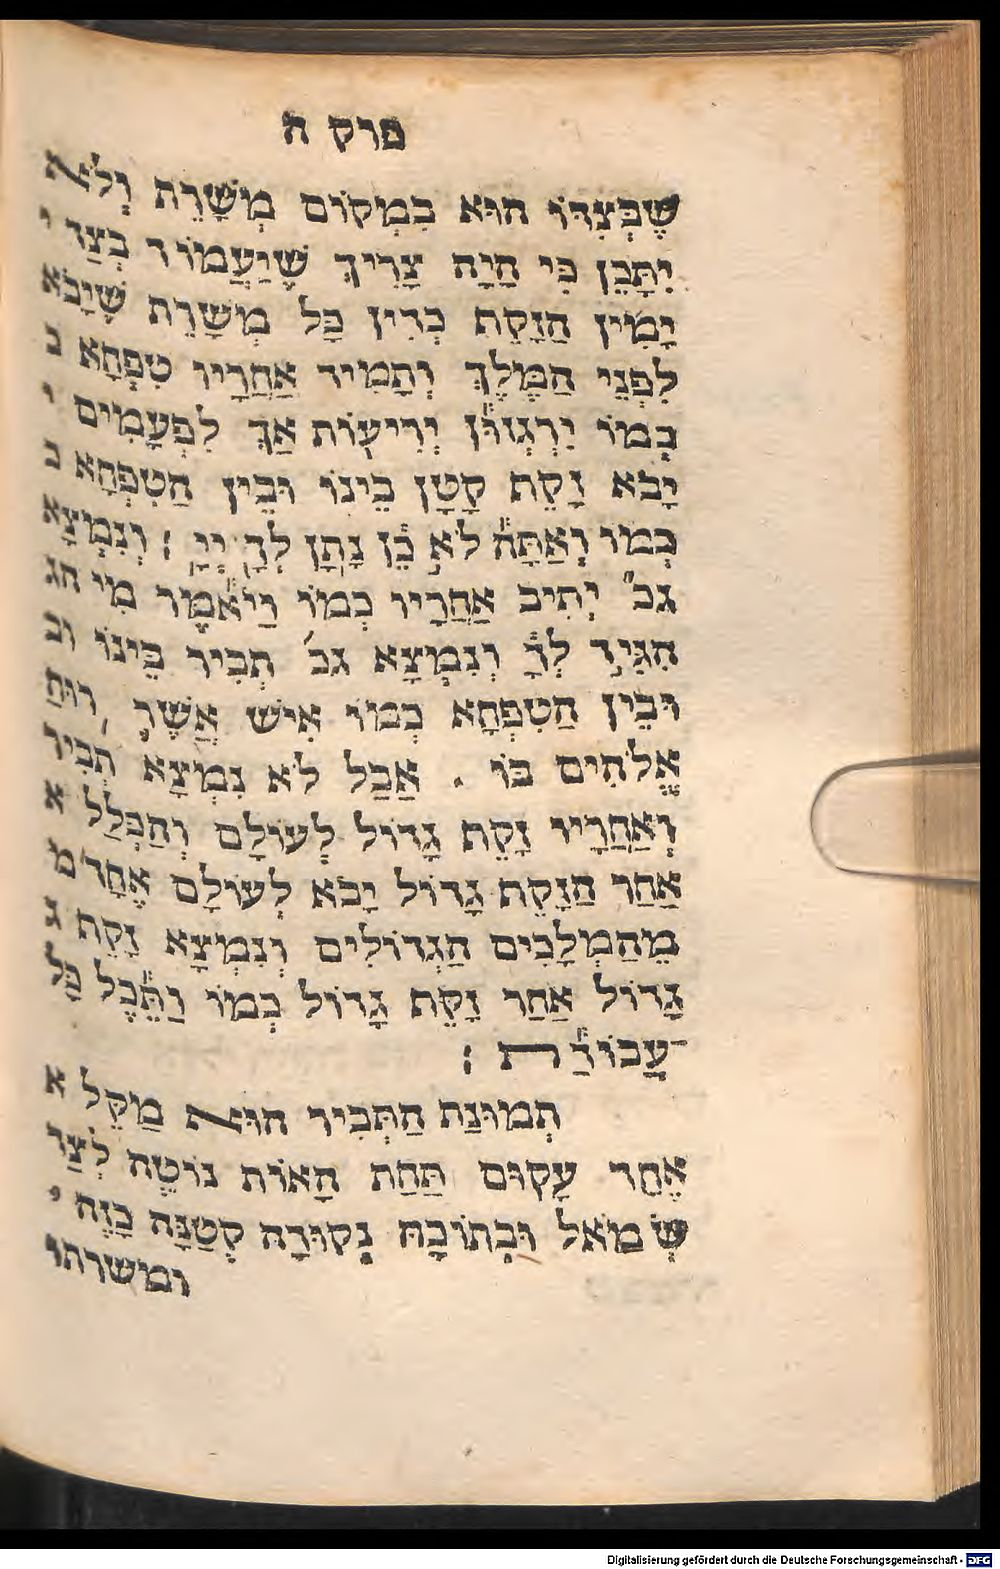 פרק ח
שֶׁבְּצִדּוֹ הוּא בִּמְקוֹם מְשָׁרֵת וְלֹא
יִתָּכֵן כִּי הָיָה צָרִיךְ שֶׁיַּעֲמוֹד בְּצַד י
יָמִין הַזָּקֵף כְּדִין כָּל מְשָׁרֵת שֶׁיָּבֹא
לִפְנֵי הַמֶּלֶךְ וְתָמִיד אַחֲרָיו טִפְּחָא כ
כְּמוֹ יִרְגְּזוּן יְרִיעוֹת אַךְ לִפְעָמִים י
יָבֹא זָקֵף קָטָן בֵּינוֹ וּבֵין הַטִפְּחָא כ
כְּמוֹ וְאַתָּה לֹא כֵן נָתַן לְךָ יְיָ : וְנִמְצָא
גכ׳ יְתִיב אַחֲרָיו כְּמוֹ וַיֹּאמֶר מִי הג
הִגִּיד לְךָ וְנִמְצָא גכ׳ תְּבִיר בֵּינוֹ וּב
וּבֵין הַטִפְּחָא כְּמוֹ אִישׁ אֲשֶׁר רוּחַ
אֱלֹהִים בּוֹ . אֲבָל לֹא נִמְצָא תְבִיר
וְאַחֲרָיו זָקֵף גָּדוֹל לְעוֹלָם וְהַכְּלָל א
אַחַר הַזָּקֵף גָּדוֹל יָבֹא לְעוֹלָם אֶחָד מ
מֵהַמְּלָכִים הַגְּדוֹלִים וְנִמְצָא זָקֵף ג
גָּדוֹל אַחַר זָקֵף גָּדוֹל כְּמוֹ וַתֵּכֶל כָּל
־עֲבוֹדַת :
תְּמוּנַת הַתְּבִיר הוּא מַקֵּל א
אֶחָד עָקוּם תַּחַת הָאוֹת נוֹטֶה לְצַד
שְׂמֹאל וּבְתוֹכָהּ נְקוּדָה קְטַנָּה כָּזֶה
ומשרתו
Digitalisierung gefördert durch die Deutsche Forschungsgemeinschaft - DFG